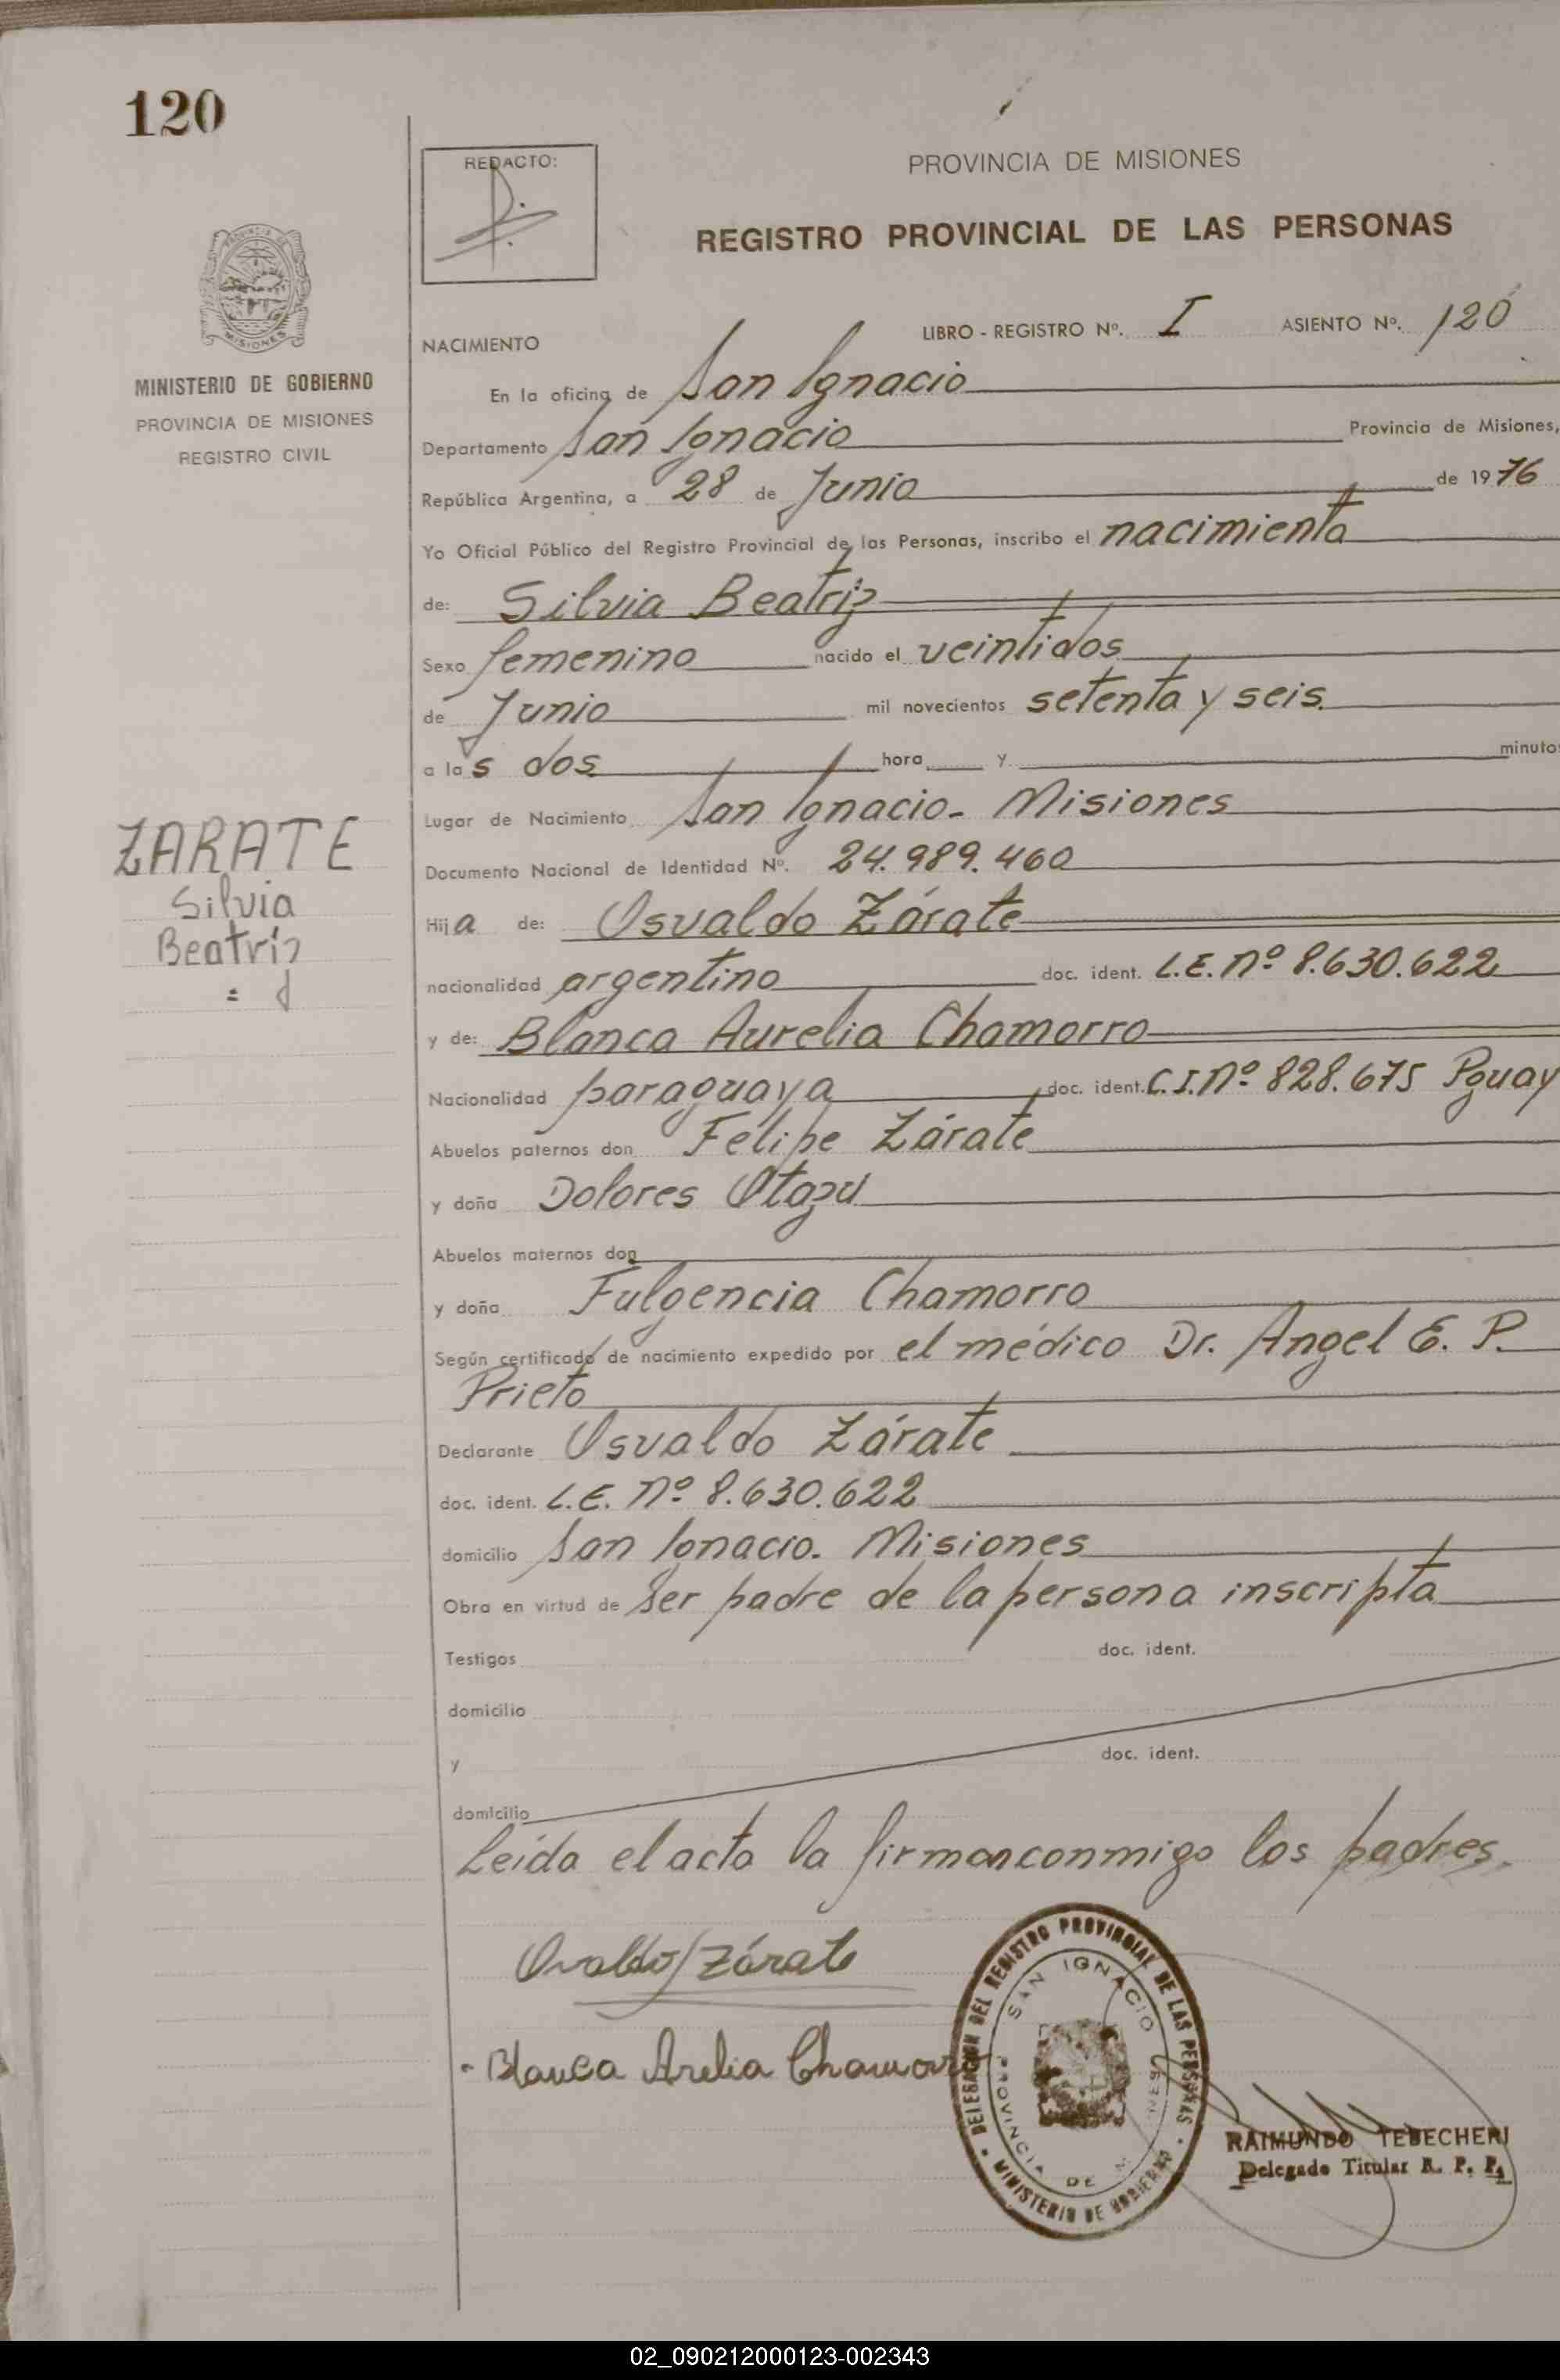 120
REDACTO:
PROVINCIA DE MISIONES
REGISTRO PROVINCIAL DE LAS PERSONAS
MISIONES
MINISTERIO DE GOBIERNO
PROVINCIA DE MISIONES
REGISTRO CIVIL
LIBRO - REGISTRO Nº. I ASIENTO Nº. 120
NACIMIENTO
En la oficina de San Ignacio
Departamento San Ignacio Provincia de Misiones,
República Argentina, a 28 de Junio de 1976
Yo Oficial Público del Registro Provincial de las Personas, inscribo el nacimiento
de: Silvia Beatriz
Sexo femenino nacido el veintidos
de Junio mil novecientos setenta y seis.
a las dos hora y minutos
Lugar de Nacimiento San Ignacio - Misiones
Documento Nacional de Identidad Nº. 24.989.460
ZARATE
Silvia
Beatriz
Hija de: Osvaldo Zárate
nacionalidad argentino doc. ident. L.E. Nº 8.630.622
y de: Blanca Aurelia Chamorro
Nacionalidad paraguaya doc. ident. C.I. Nº 828.675 Pguay
Abuelos paternos don Felipe Zárate
y doña Dolores Otazú
Abuelos maternos don
y doña Fulgencia Chamorro
Según certificado de nacimiento expedido por el médico Dr. Angel E. P.
Prieto
Declarante Osvaldo Zárate
doc. ident. L.E. Nº 8.630.622
domicilio San Ignacio. Misiones
Obra en virtud de ser padre de la persona inscripta
Testigos doc. ident.
domicilio
y doc. ident.
domicilio
Leída el acta la firman conmigo los padres.
Osvaldo Zárate
Blanca Arelia Chamorro
DELEGACION DEL REGISTRO PROVINCIAL DE LAS PERSONAS
SAN IGNACIO
PROVINCIA DE MISIONES
MINISTERIO DE GOBIERNO
RAIMUNDO TEBECHERI
Delegado Titular R. P. P.
02_090212000123-002343